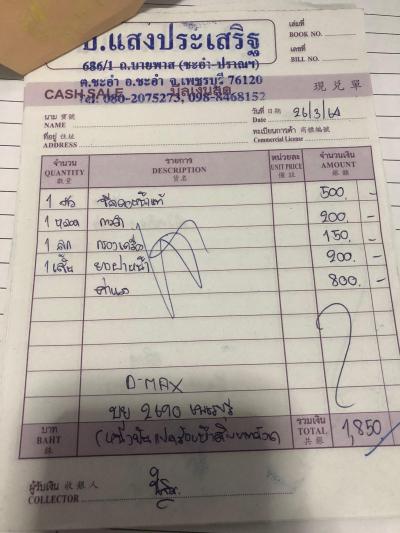 บ.แสงประเสริฐ
686/1 ถ.นายพาส (ชะอำ-ปราณฯ)
ต.ชะอำ อ.ชะอำ จ.เพชรบุรี 76120
Tel: 080-2075273, 098-8468152
เล่มที่
BOOK NO.
เลขที่
BILL NO.
CASH SALE บิลเงินสด 現兑單
นาม 寶號
NAME
วันที่ 日期
Date 26/3/64
ที่อยู่ 住址
ADDRESS
ทะเบียนการค้า 商標編號
Commercial License
จำนวน
QUANTITY
數量
รายการ
DESCRIPTION
貨名
หน่วยละ
UNIT PRICE
จำนวนเงิน
1 ตัว 500.-
1 หลอด กาวดำ 200.-
1 ลูก กรองเครื่อง 150.-
1 เส้น ยางฝาหน้า 200.-
ค่าแรง 800.-
D-MAX
2690 เพชรบุรี
บาท
BAHT
รวมเงิน
TOTAL
共銀
1,850
ผู้รับเงิน 收銀人
COLLECTOR